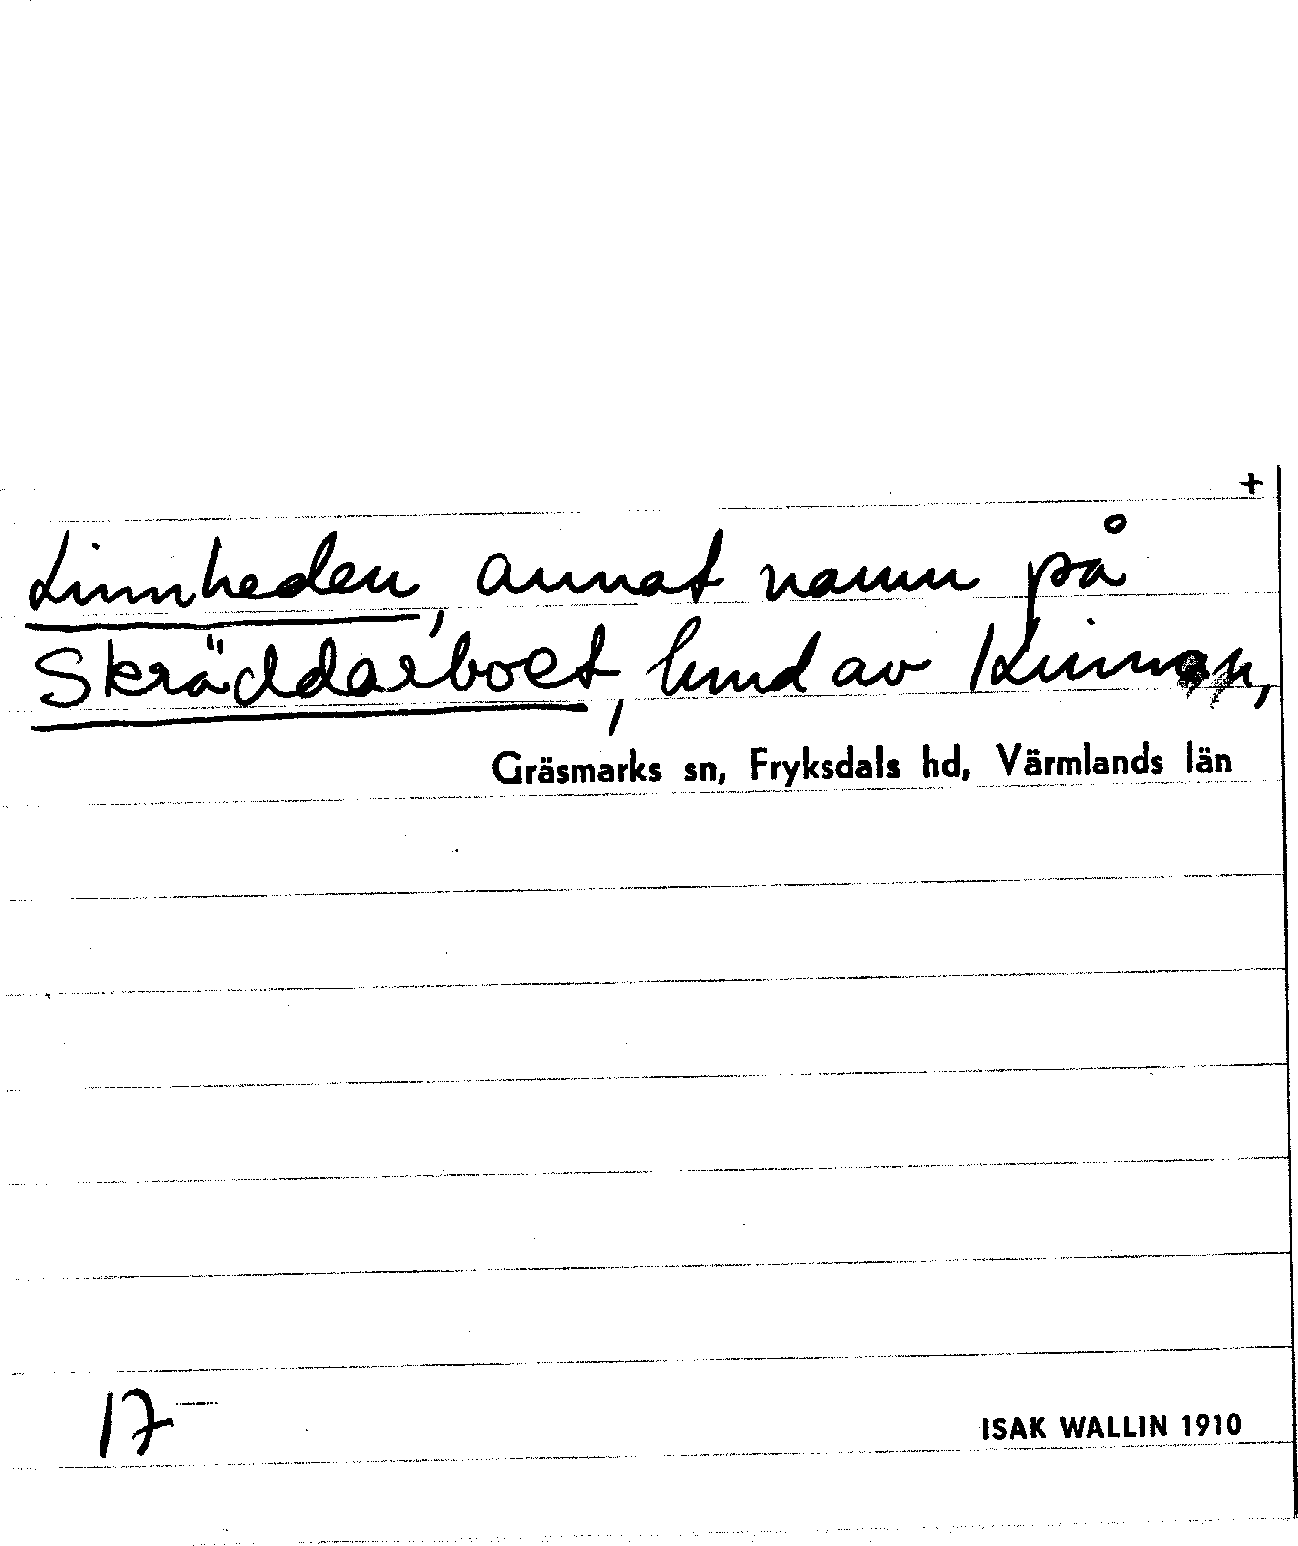 +
Linnheden, annat namn på
Skräddarboet, av
Gräsmarks sn, Fryksdals hd, Värmlands län
17
ISAK WALLIN 1910